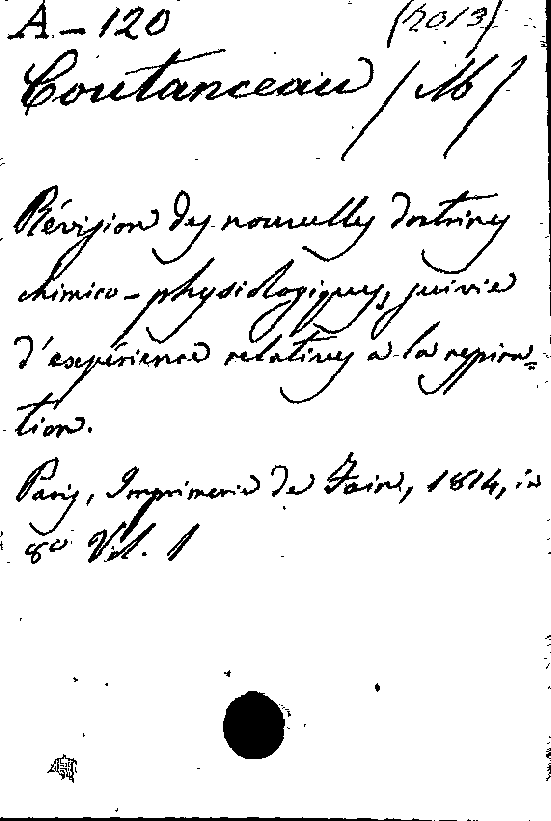 A - 120 (2013)
Coutanceau (M)
Révision des nouvelles doctrines
chimico-physiologiques, suivie
d'expérience relatives a la respira=
tion.
Paris, Imprimerie de Fain, 1814, in
8º Vol. 1